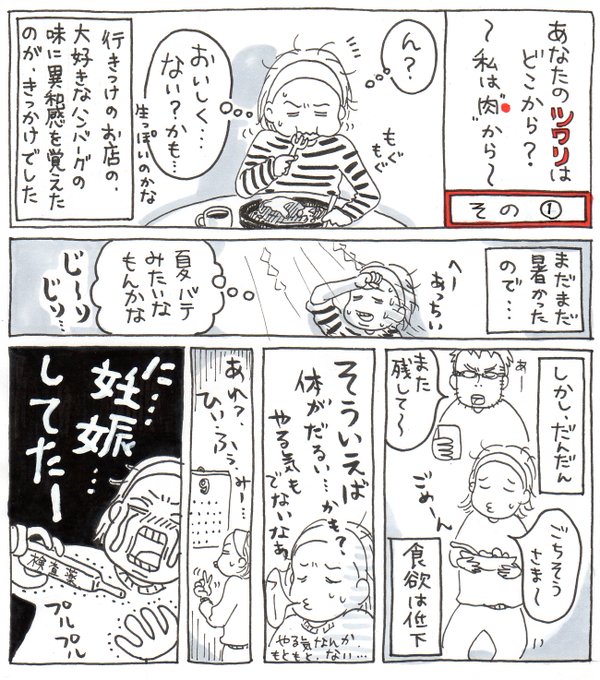 あなたのツワリは
どこから？
〜私は"肉"から〜
その①
ん？
おいしく…
ない？かも…
生っぽいのかな
もぐもぐ
行きつけのお店の、
大好きなハンバーグの
味に異和感を覚えた
のが、きっかけでした
まだまだ
暑かった
ので…
へー
あっちぃ
夏バテ
みたいな
もんかな
じ〜り
じり…
しかし、だんだん
あー
また
残して〜
ごめーん
ごちそう
さま〜
食欲は低下
そういえば
体がだるい…かも？
やる気も
でないなぁ
やる気なんか
もともと、ない…
あれ？
ひい、ふぅ、みー…
た…
妊娠…
してたー
検査薬
プルプル